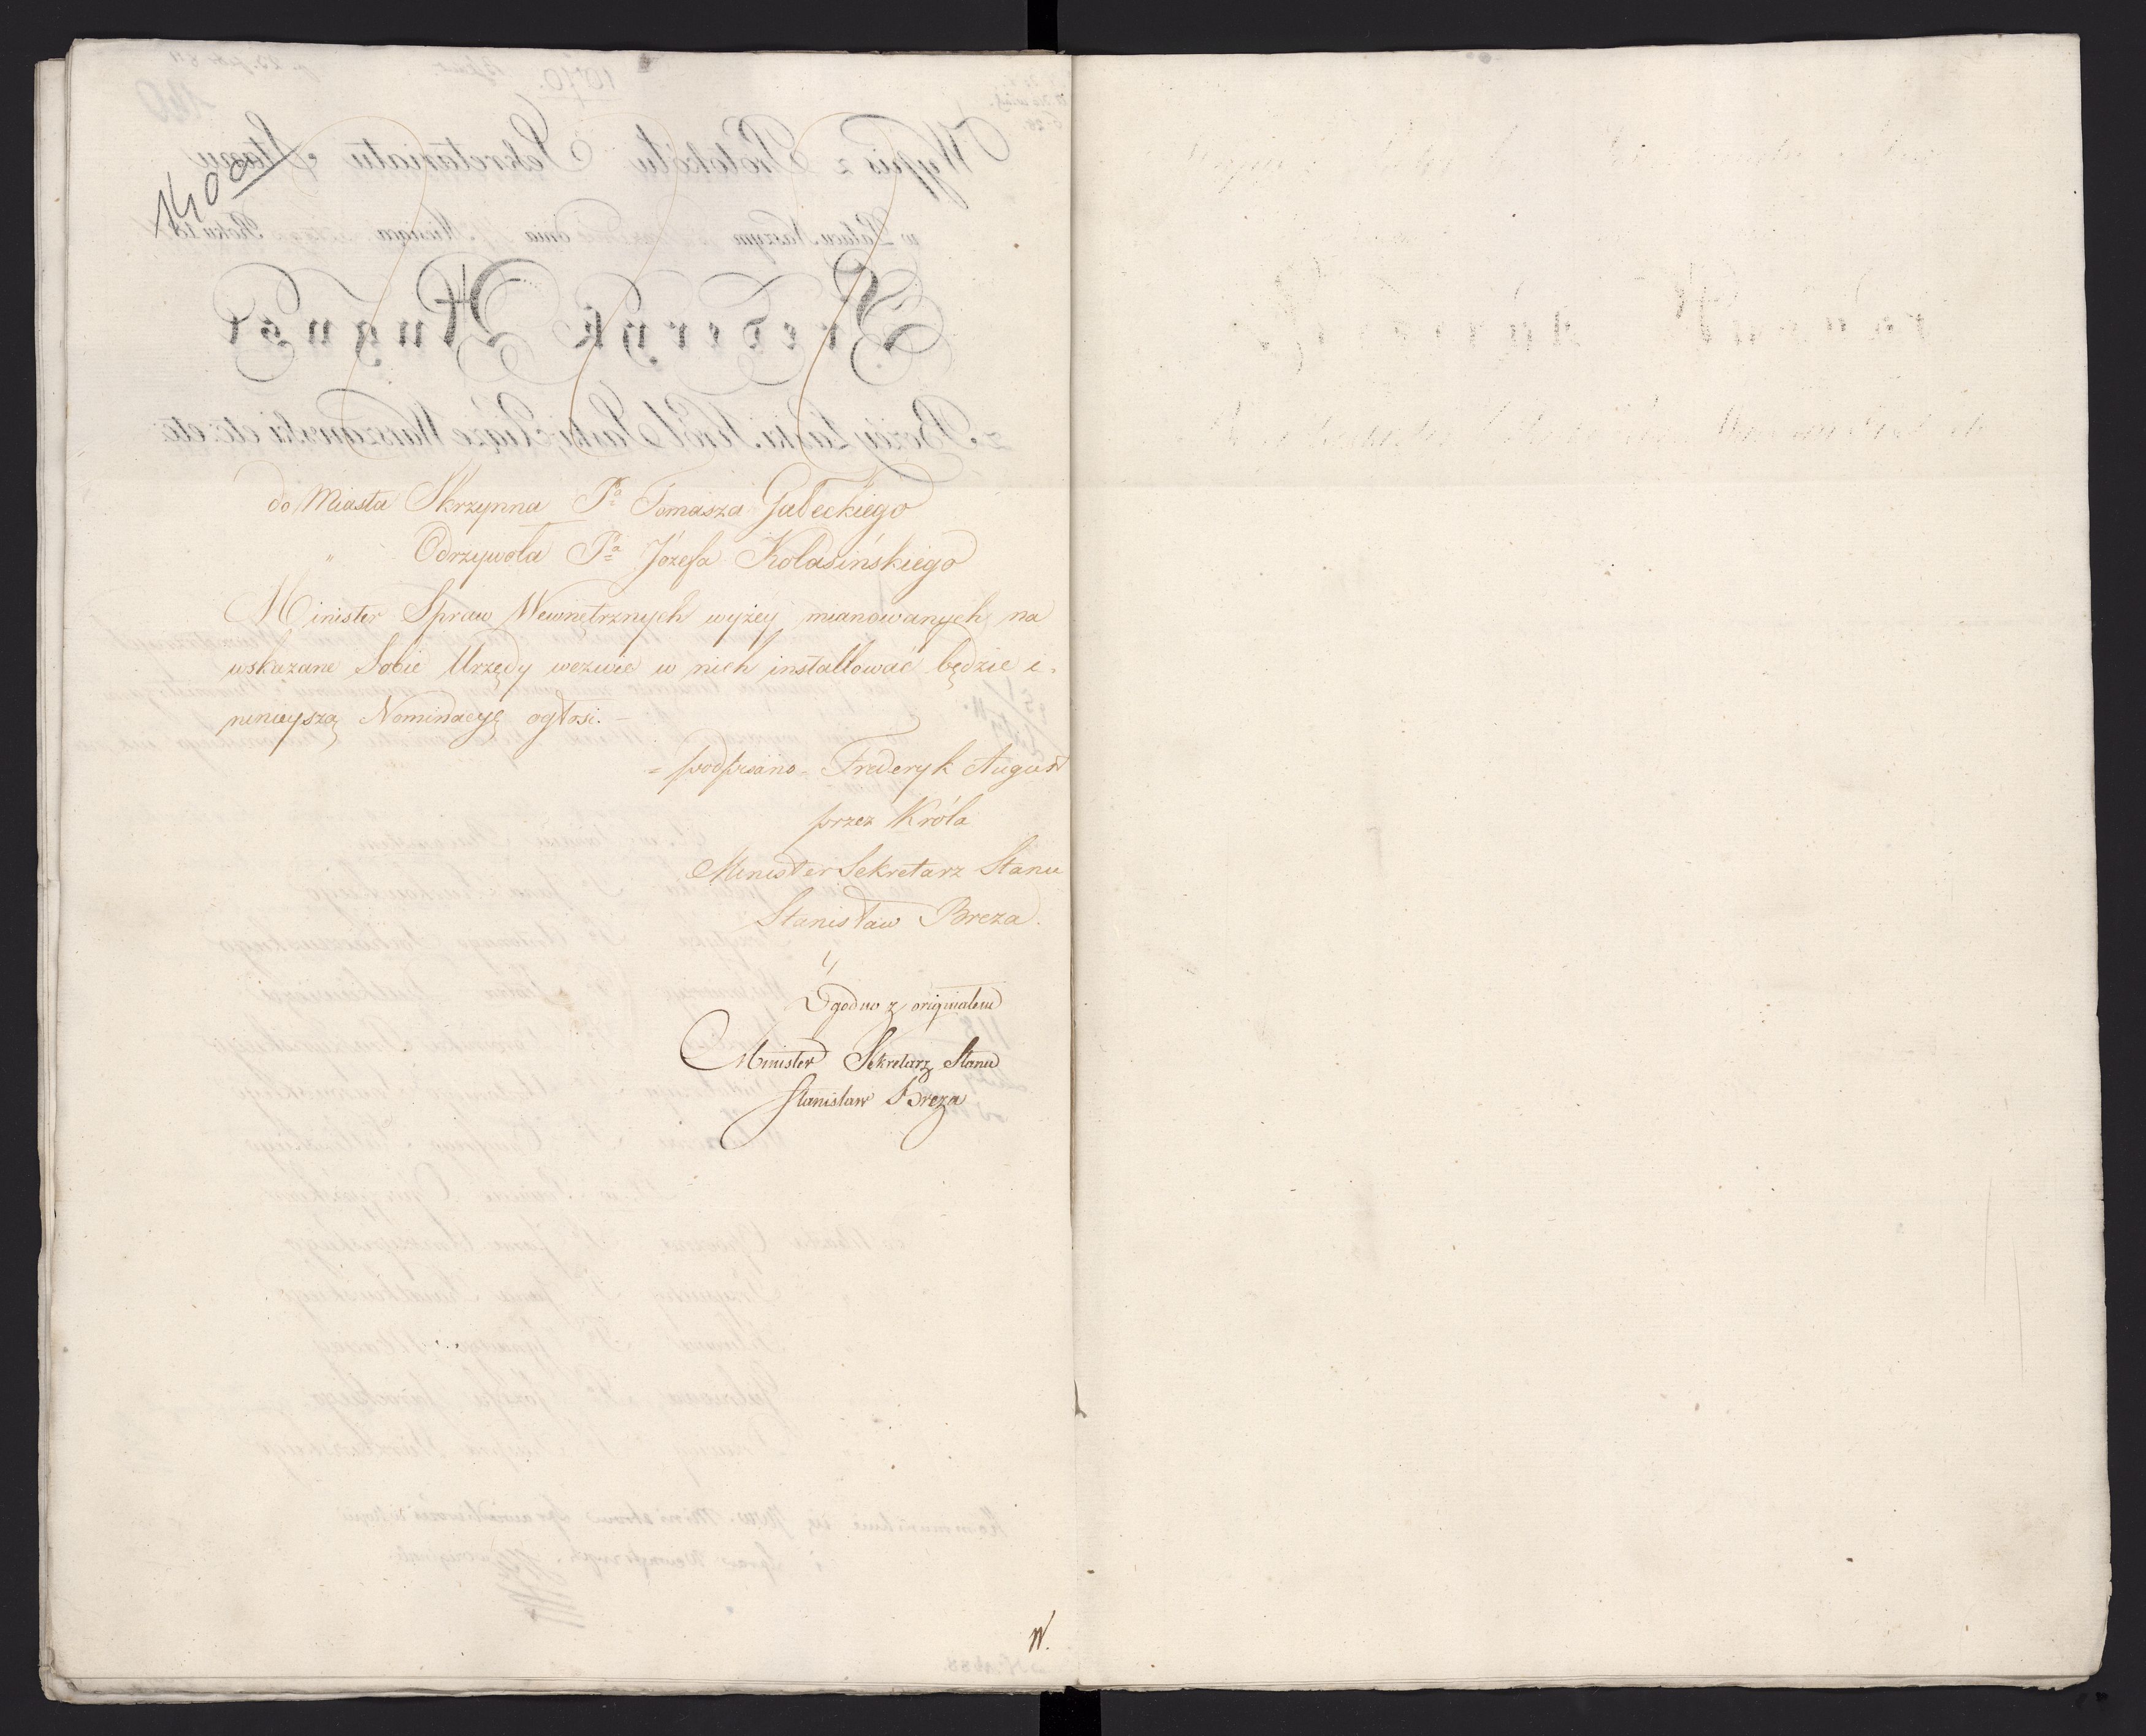 140a
do Miasta Skrzynna Pa Tomasza Gałeckiego
" Odrzywoła Pa Józefa Kolasińskiego
Minister Spraw Wewnętrznych wyżey mianowanych na
wskazane Sobie Urzędy wezwie w nich installować będzie i
ninieyszą Nominacyę ogłosi. –
= podpisano – Frederyk August
przez Króla
Minister Sekretarz Stanu
Stanisław Breza.
Zgodno z originałem
Minister Sekretarz Stanu
Stanisław Breza
W.